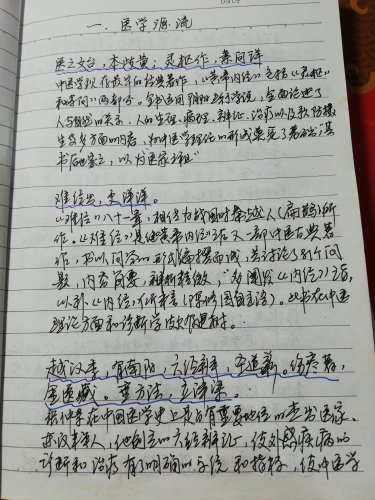 Date
一、医学源流
医之始，本岐黄；灵枢作，素问详
中医学现存最早的经典著作，《黄帝内经》包括《灵枢》
和《素问》两部分，全书运用阴阳五行学说，全面论述了
人与自然的关系、人的生理、病理、辨证、治疗以及预防
养生等方面的内容，为中医学理论的形成奠定了基础
后世宗之，以为医家之祖"
难经出，更洋洋。
《难经》八十一章，相传为战国时秦越人（扁鹊）所
作。《难经》是继《黄帝内经》之后又一部中医古典著
作，书以问答的形式编撰而成，共讨论了81个问
题，内容简要，辨析精微，"多阐发《内经》之旨，
以补《内经》所未言
此书在中医
理论方面和诊断学
越汉季，有南阳，六经辨，圣道彰。伤寒著，
金匮藏。垂方法，立津梁。
张仲景在中国医学史上是占有重要地位的杰出医家。
他创立的六经辨证，使外感疾病的
诊断和治疗有了明确的系统和指标，使中医学